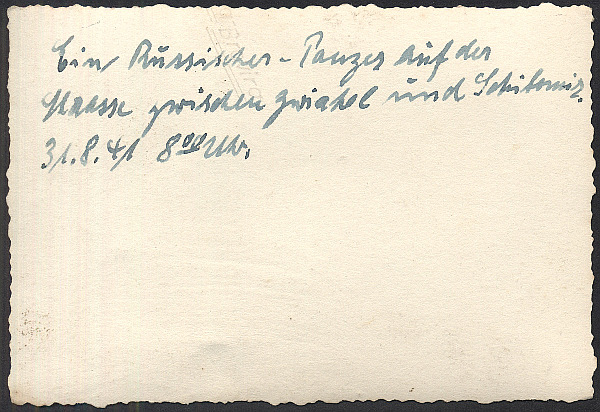 Ein Russischer-Panzer auf der
Strasse zwischen Zwiahel und Schitomir.
31.8.41 8⁰⁰ Uhr.